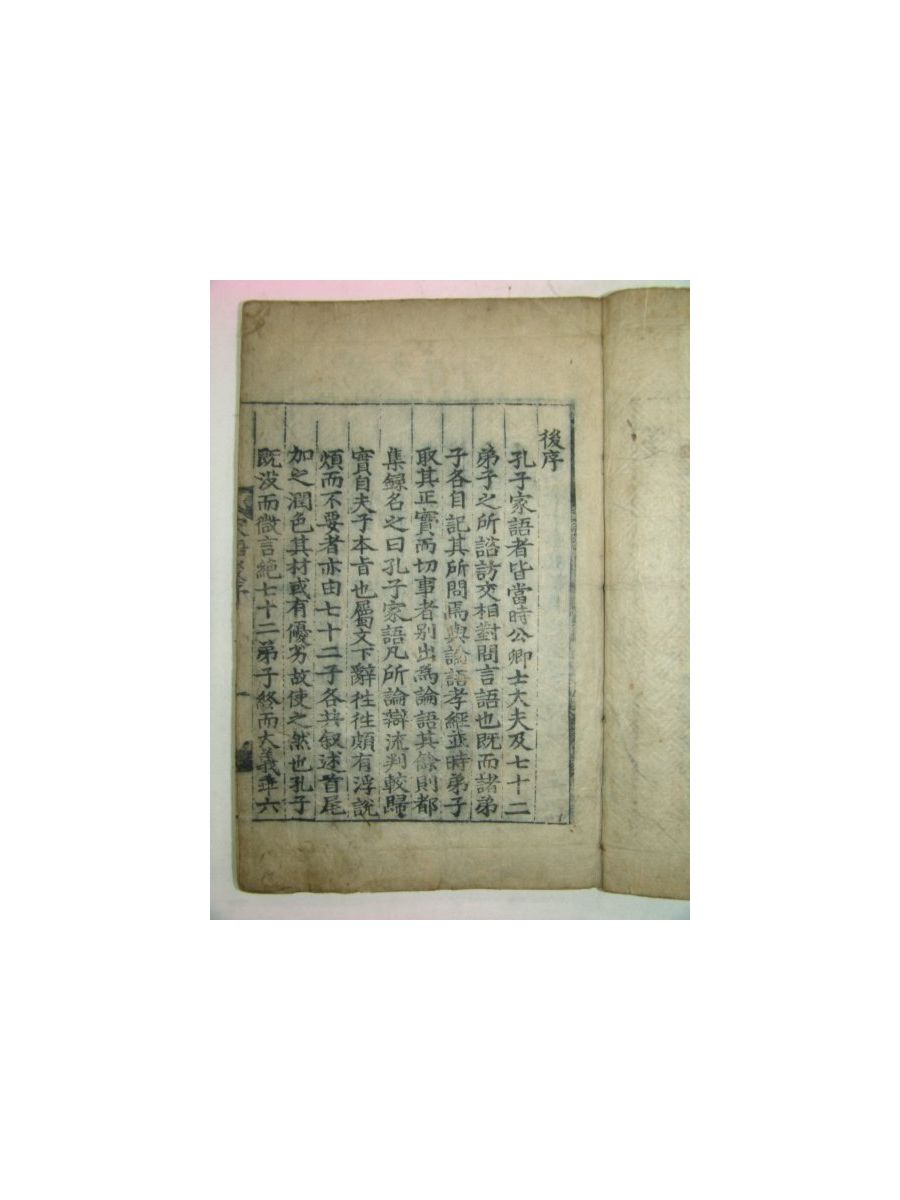 後序
孔子家語者皆當時公卿士大夫及七十二
弟子之所諮訪交相對問言語也既而諸弟
子各自記其所問焉與論語孝經並時弟子
取其正實而切事者别出為論語其餘則都
集録名之曰孔子家語凡所論辯流判較歸
實自夫子本旨也屬文下辭徃徃頗有浮說
煩而不要者亦由七十二子各共叙述首尾
加之潤色其材或有優劣故使之然也孔子
既没而微言絶七十二弟子終而大義乖六
家語後序 一